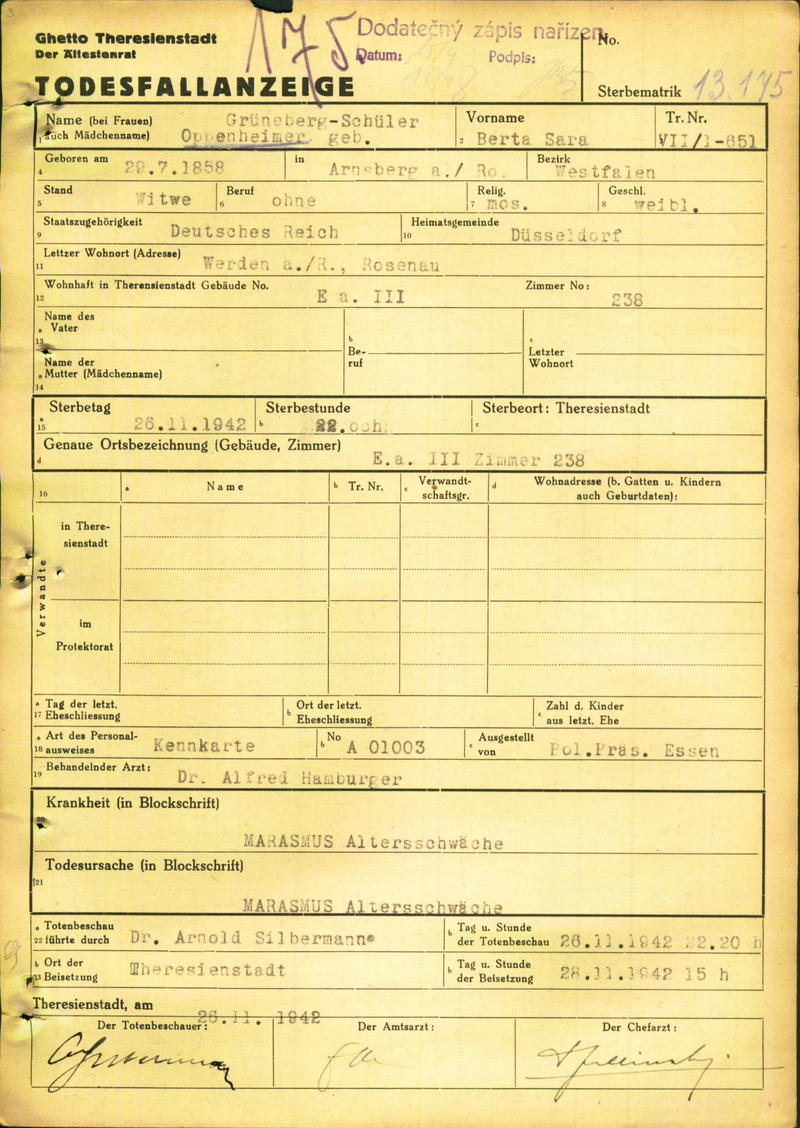 175
Dodatečný zápis nařízen
Datum:
Podpis:
Ghetto Theresienstadt
Der Ältestenrat
TODESFALLANZEIGE
No.
Sterbematrik 13.175
Name (bei Frauen) Grüneberg-Schüler
1 auch Mädchenname) Oppenheimer geb.
Vorname
2 Berta Sara
Tr. Nr.
VII/1-651
Geboren am
4 29.7.1858
in
Arnsberg a./ Ro.
Bezirk
Westfalen
Stand
5 Witwe
Beruf
6 ohne
Relig.
7 mos.
Geschl.
8 weibl.
Staatszugehörigkeit
9 Deutsches Reich
Heimatsgemeinde
10 Düsseldorf
Lettzer Wohnort (Adresse)
11 Werden a./R., Rosenau
Wohnhaft in Theresienstadt Gebäude No.
12 E a. III
Zimmer No:
238
Name des
a Vater
13
Name der
a Mutter (Mädchenname)
14
b
Be-
ruf
c
Letzter
Wohnort
Sterbetag
a 15 26.11.1942
Sterbestunde
b 22.och.
Sterbeort: Theresienstadt
c
Genaue Ortsbezeichnung (Gebäude, Zimmer)
d E.a. III Zimmer 238
16
a Name
b Tr. Nr.
c Verwandt-
schaftsgr.
d Wohnadresse (b. Gatten u. Kindern
auch Geburtdaten):
Verwandte
in There-
sienstadt
im
Protektorat
a Tag der letzt.
17 Eheschliessung
b Ort der letzt.
Eheschliessung
c Zahl d. Kinder
aus letzt. Ehe
a Art des Personal-
18 ausweises Kennkarte
b No A 01003
c Ausgestellt
von Pol.Präs. Essen
Behandelnder Arzt:
19 Dr. Alfred Hamburger
Krankheit (in Blockschrift)
20
MARASMUS Altersschwäche
Todesursache (in Blockschrift)
21
MARASMUS Altersschwäche
a Totenbeschau
22 führte durch Dr. Arnold Silbermann
b Tag u. Stunde
der Totenbeschau 26.11.1942 22.20 h
b Ort der
23 Beisetzung Theresienstadt
b Tag u. Stunde
der Beisetzung 28.11.1942 15 h
Theresienstadt, am
26.11. 1942
Der Totenbeschauer:
Der Amtsarzt:
Der Chefarzt: